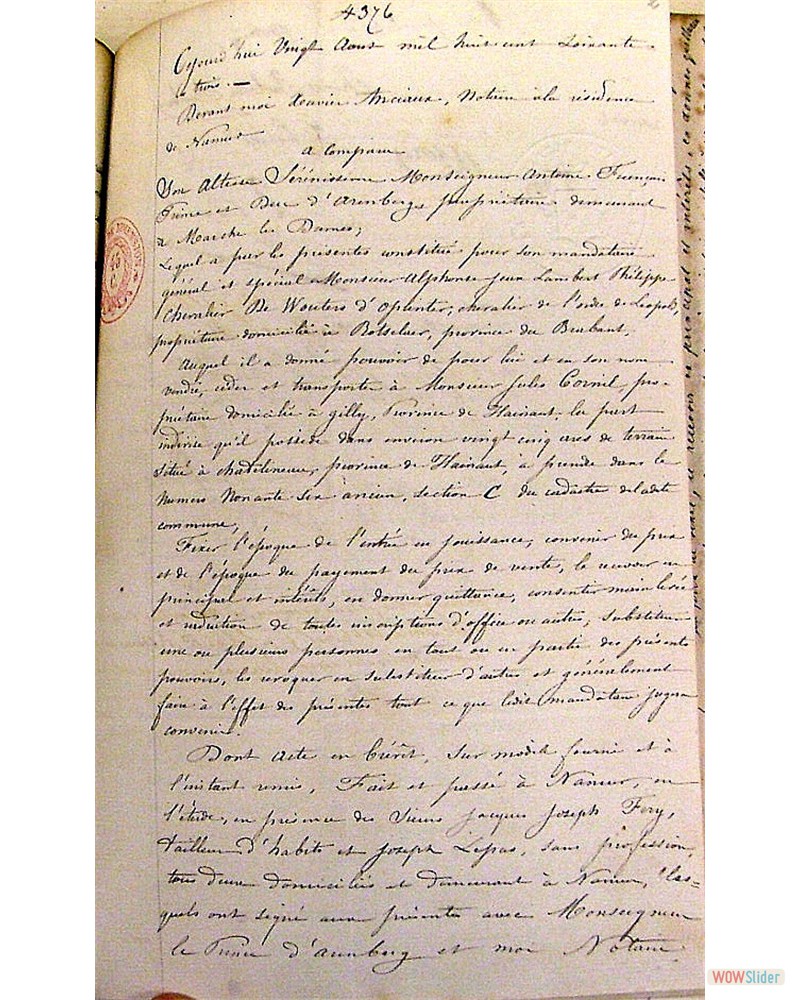 4376
Cejourd'hui Vingt Aout mil huit cent soixante
trois. —
Devant moi Xavier Anciaux, Notaire à la résidence
de Namur
a comparu
Son Altesse Sérénissime Monseigneur Antoine François
Prince et Duc d'Arenberg, propriétaire demeurant
à Marche les Dames;
Lequel a par les présentes constitué pour son mandataire
général et spécial Monsieur Alphonse Jean Lambert Philippe
Chevalier De Wouters d'Oplinter, chevalier de l'ordre de Léopold,
propriétaire domicilié à Botselaer, province du Brabant,
Auquel il a donné pouvoir de pour lui et en son nom
vendre, céder et transporter à Monsieur Jules Cornil, pro-
priétaire domicilié à Gilly, Province de Hainaut, la part
indivise qu'il possède dans environ vingt cinq ares de terrain
situé à Chatelineau, province de Hainaut, à prendre dans le
Numéro Nonante six ancien, section C du cadastre de ladite
commune,
Fixer l'époque de l'entrée en jouissance, convenir du prix
et de l'époque du payement du prix de vente, le recevoir en
principal et intérêts, en donner quittance, consentir mainlevée
et réduction de toutes inscriptions d'office ou autres, substituer
une ou plusieurs personnes en tout ou en partie des présents
pouvoirs, les révoquer en substituer d'autres et généralement
faire à l'effet des présentes tout ce que ledit mandataire jugera
convenir.
Dont Acte en Brévêt, sur modèle fourni et à
l'instant remis, Fait et passé à Namur, en
l'étude, en présence des Sieurs Jacques Joseph Fery,
tailleur d'habits et Joseph Lepas, sans profession,
tous deux domiciliés et demeurant à Namur, les-
quels ont signé aux présentes avec Monseigneur
le Prince d'Arenberg et moi Notaire.
WOWSlider